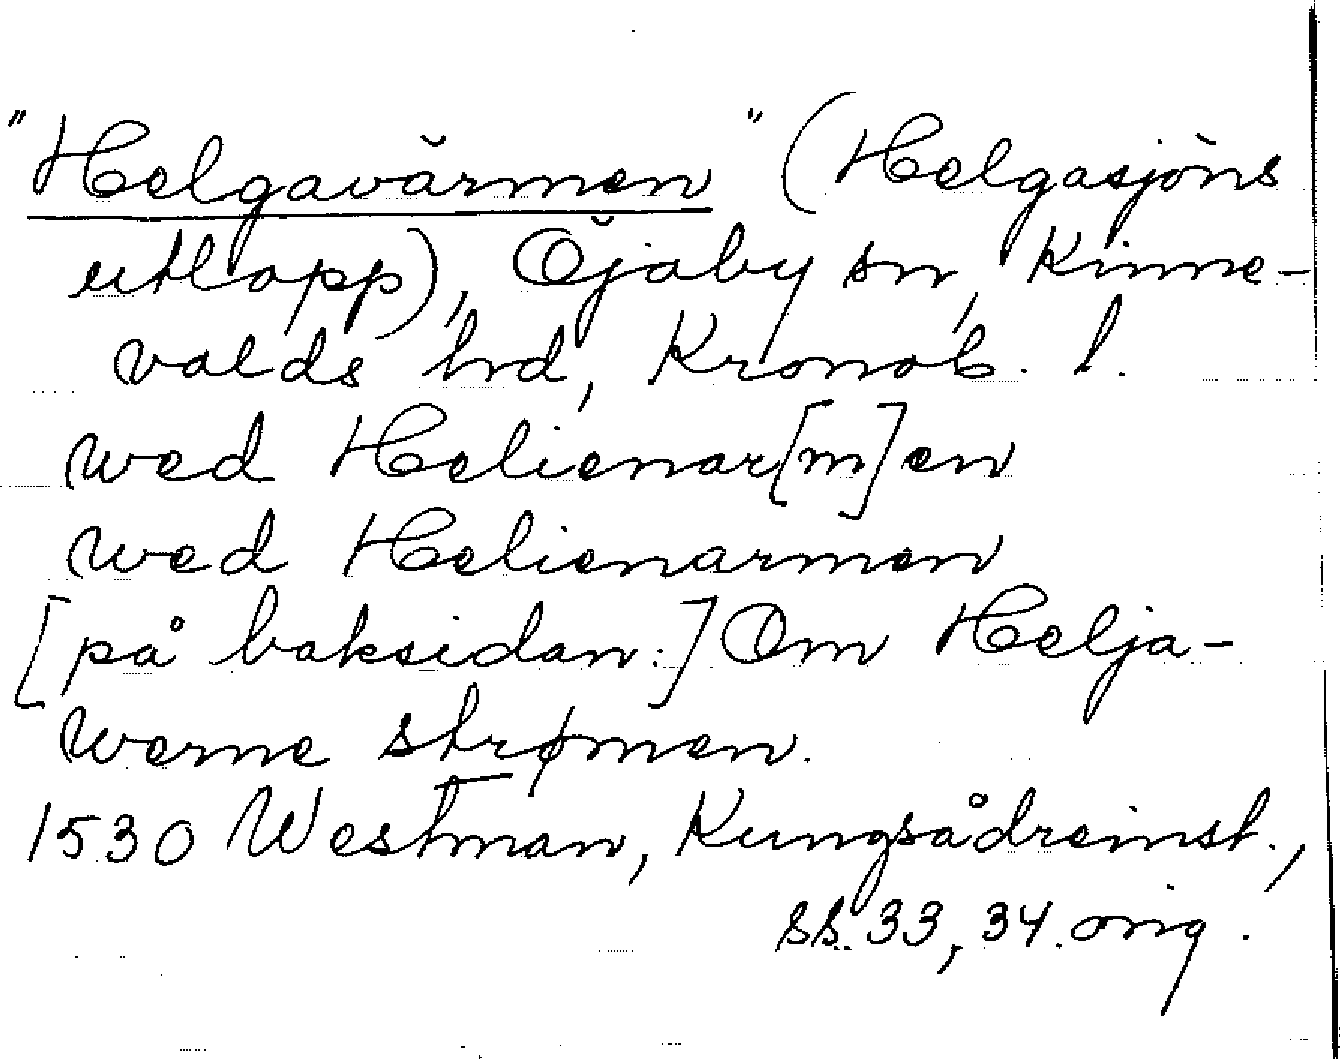 "Helgavärmen" (Helgasjöns
utlopp), Öjaby sn, Kinne-
valds hd, Kronob. l.
wed Helienar[m]en
wed Helienarmen
[på baksidan:] Om Helja-
werne strømen.
1530 Westman, Kungsådreinst.,
ss. 33, 34. orig.